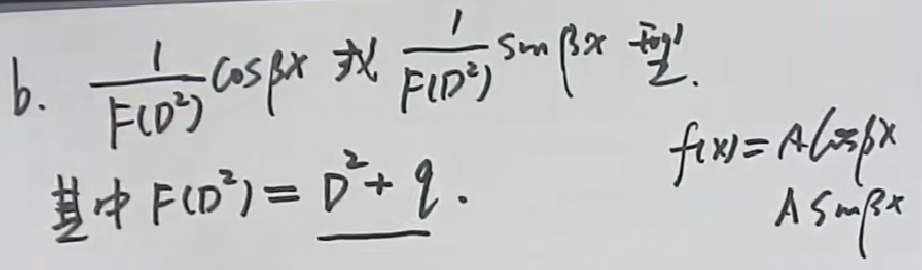 b. \frac{1}{F(D²)} cosβx 或 \frac{1}{F(D²)} sinβx 型.
其中 F(D²) = D² + q.
f(x) = A cosβx
A sinβx